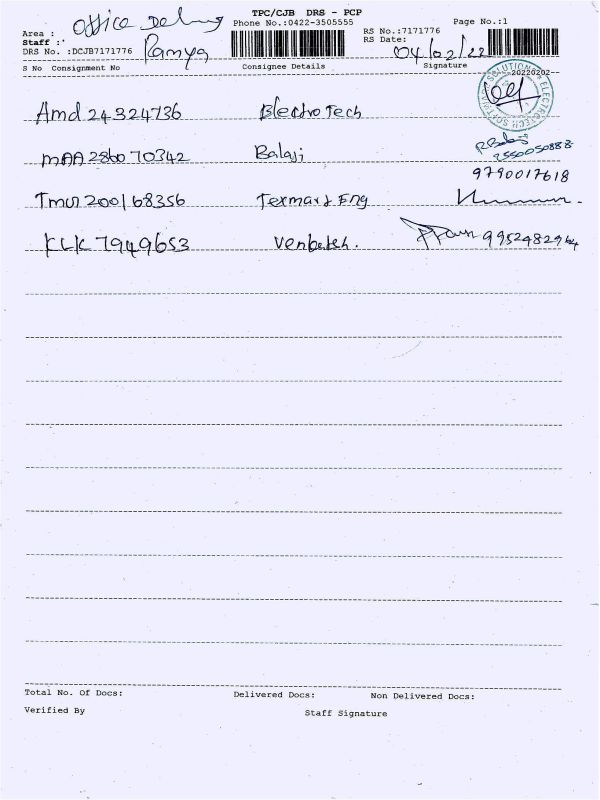 TPC/CJB DRS - PCP
Office
Area :
Phone No.:0422-3505555
RS No.:7171776
Page No.:1
Staff :
Ramya
RS Date:
04/02/22
DRS No. :DCJB7171776
S No Consignment No
Consignee Details
Signature
20220202
Amd 24324736 ElectroTech
MAA 286070342 Balaji
9790017618
200168356 Texmard Eng
KLK 7949653 Venkatesh.
Total No. Of Docs:
Delivered Docs:
Non Delivered Docs:
Verified By
Staff Signature